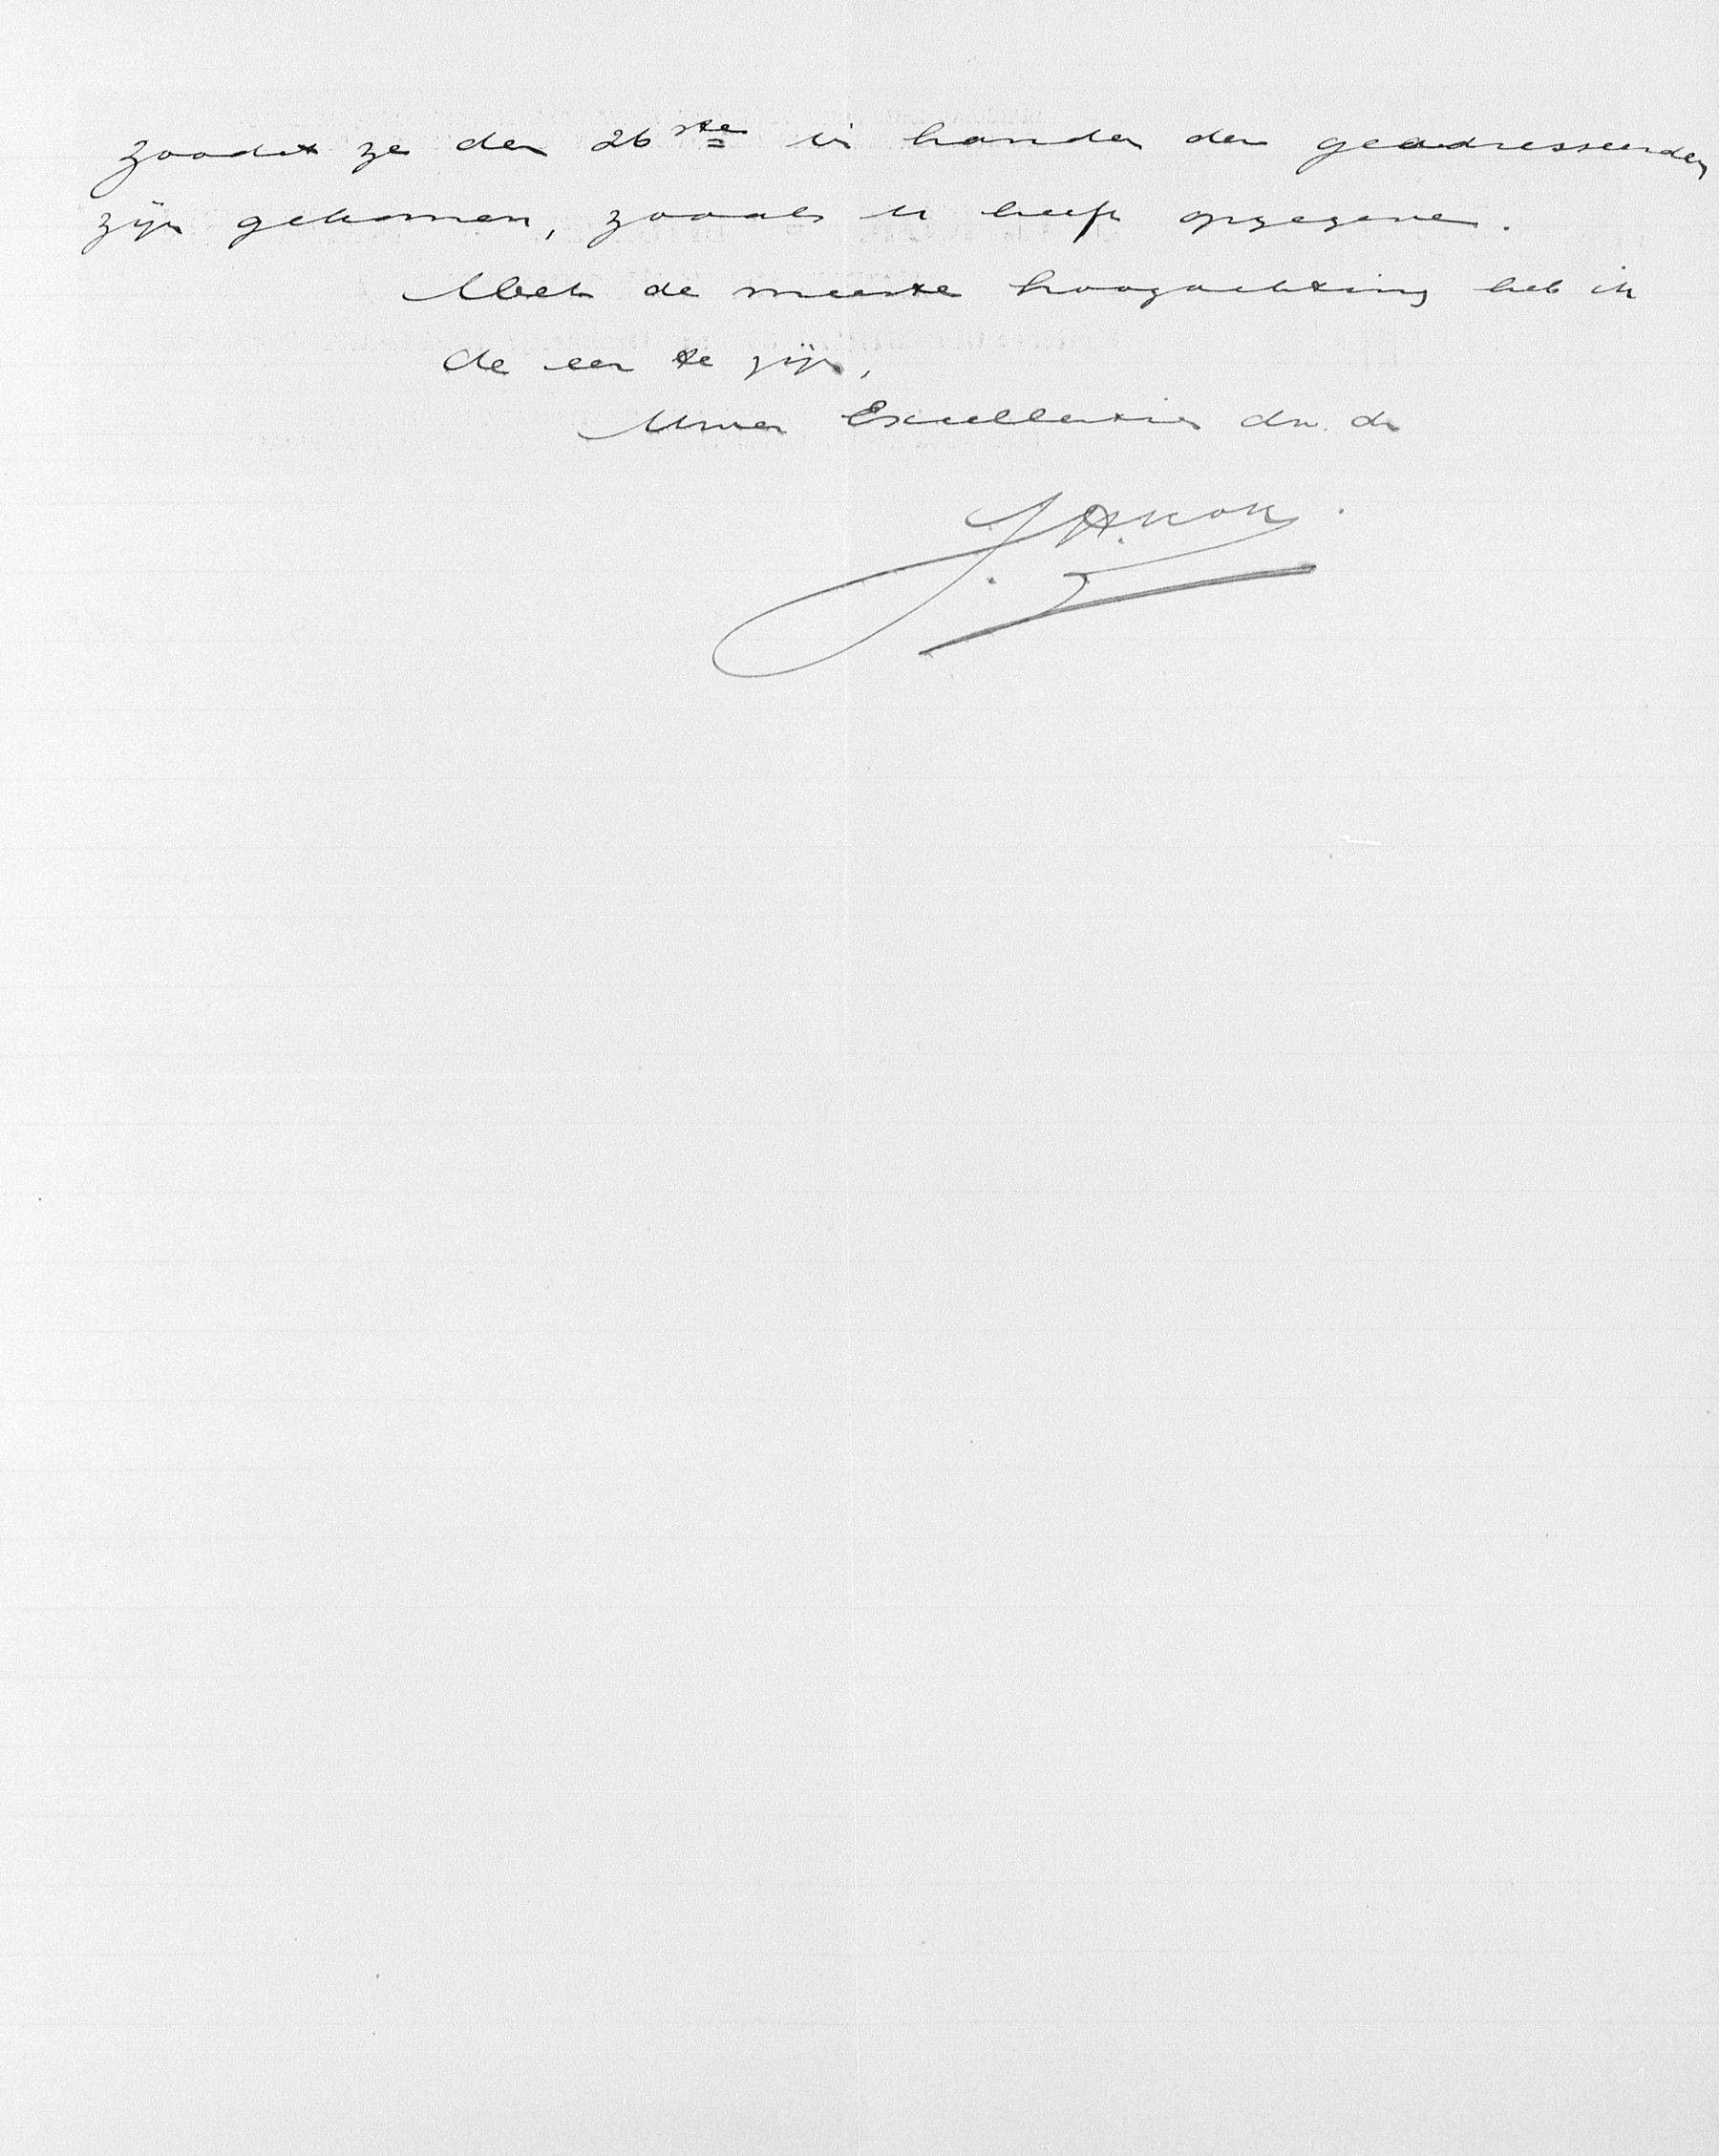 zoodat ze den 26ste in handen der geadresseerden
zijn gekomen, zooals u heeft opgegeven.
Met de meeste hoogachting heb ik
de eer te zijn,
Uwer Excellentie's dw. dr
J. A. Kok.